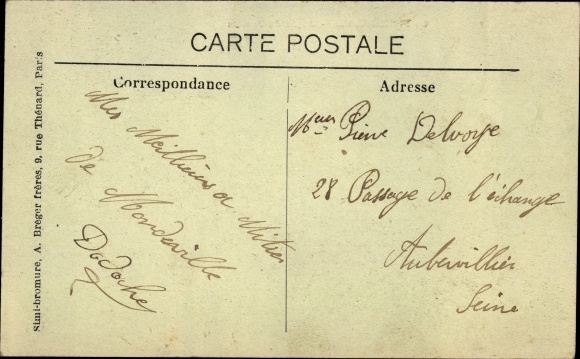 CARTE POSTALE
Correspondance
Mes Meilleurs
de Mondeville
Dodoche
Adresse
Pierre Delvoye
28 Passage de l'échange
Aubervillier
Seine
Simi-bromure, A. Breger frères, 9, rue Thénard, Paris